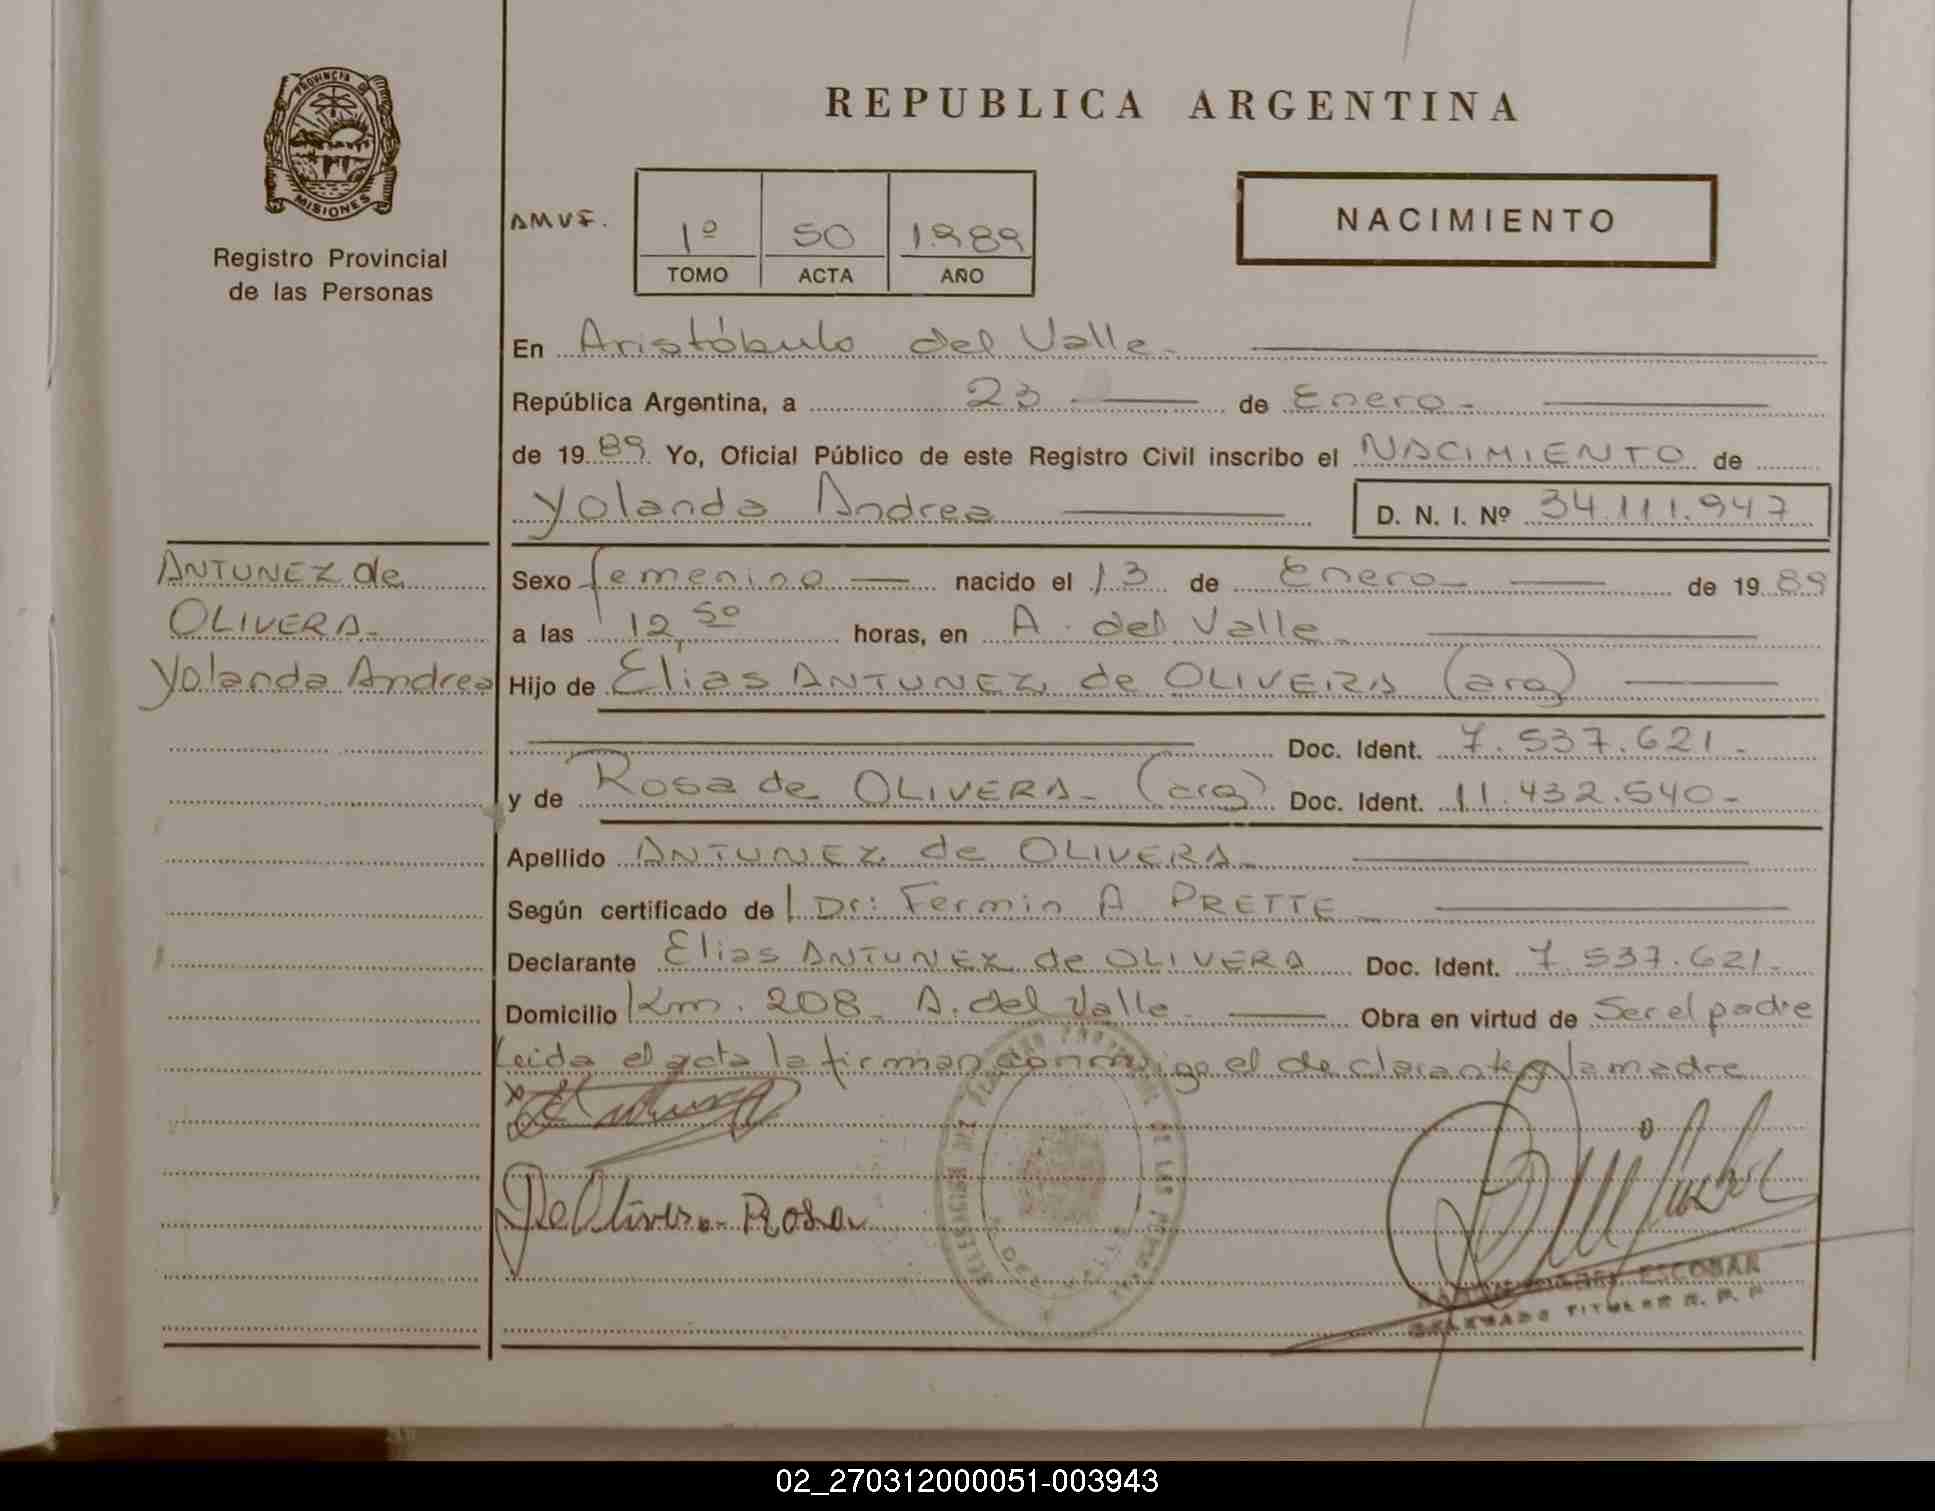 PROVINCIA DE
MISIONES
Registro Provincial
de las Personas
REPUBLICA ARGENTINA
AMVF.
1º 50 1.989
TOMO ACTA AÑO
NACIMIENTO
En Aristóbulo del Valle.
República Argentina, a 23 de Enero.
de 1989 Yo, Oficial Público de este Registro Civil inscribo el NACIMIENTO de
Yolanda Andrea D. N. I. Nº 34.111.947
ANTUNEZ de
OLIVERA.
Yolanda Andrea
Sexo femenino nacido el 13 de Enero de 1989
a las 12,50 horas, en A. del Valle
Hijo de Elias ANTUNEZ de OLIVEIRA (arg)
Doc. Ident. 7.537.621.
y de Rosa de OLIVERA. (arg) Doc. Ident. 11.432.540-
Apellido ANTUNEZ de OLIVERA
Según certificado de Dr: Fermin A PRETTE
Declarante Elias ANTUNEZ de OLIVERA Doc. Ident. 7.537.621.
Domicilio Km. 208. A. del Valle Obra en virtud de Ser el padre
Leida el acta la firman conmigo el declarante y la madre
De Olivera Rosa
ESCOBAR
DELEGADO TITULAR R. P. P.
02_270312000051-003943